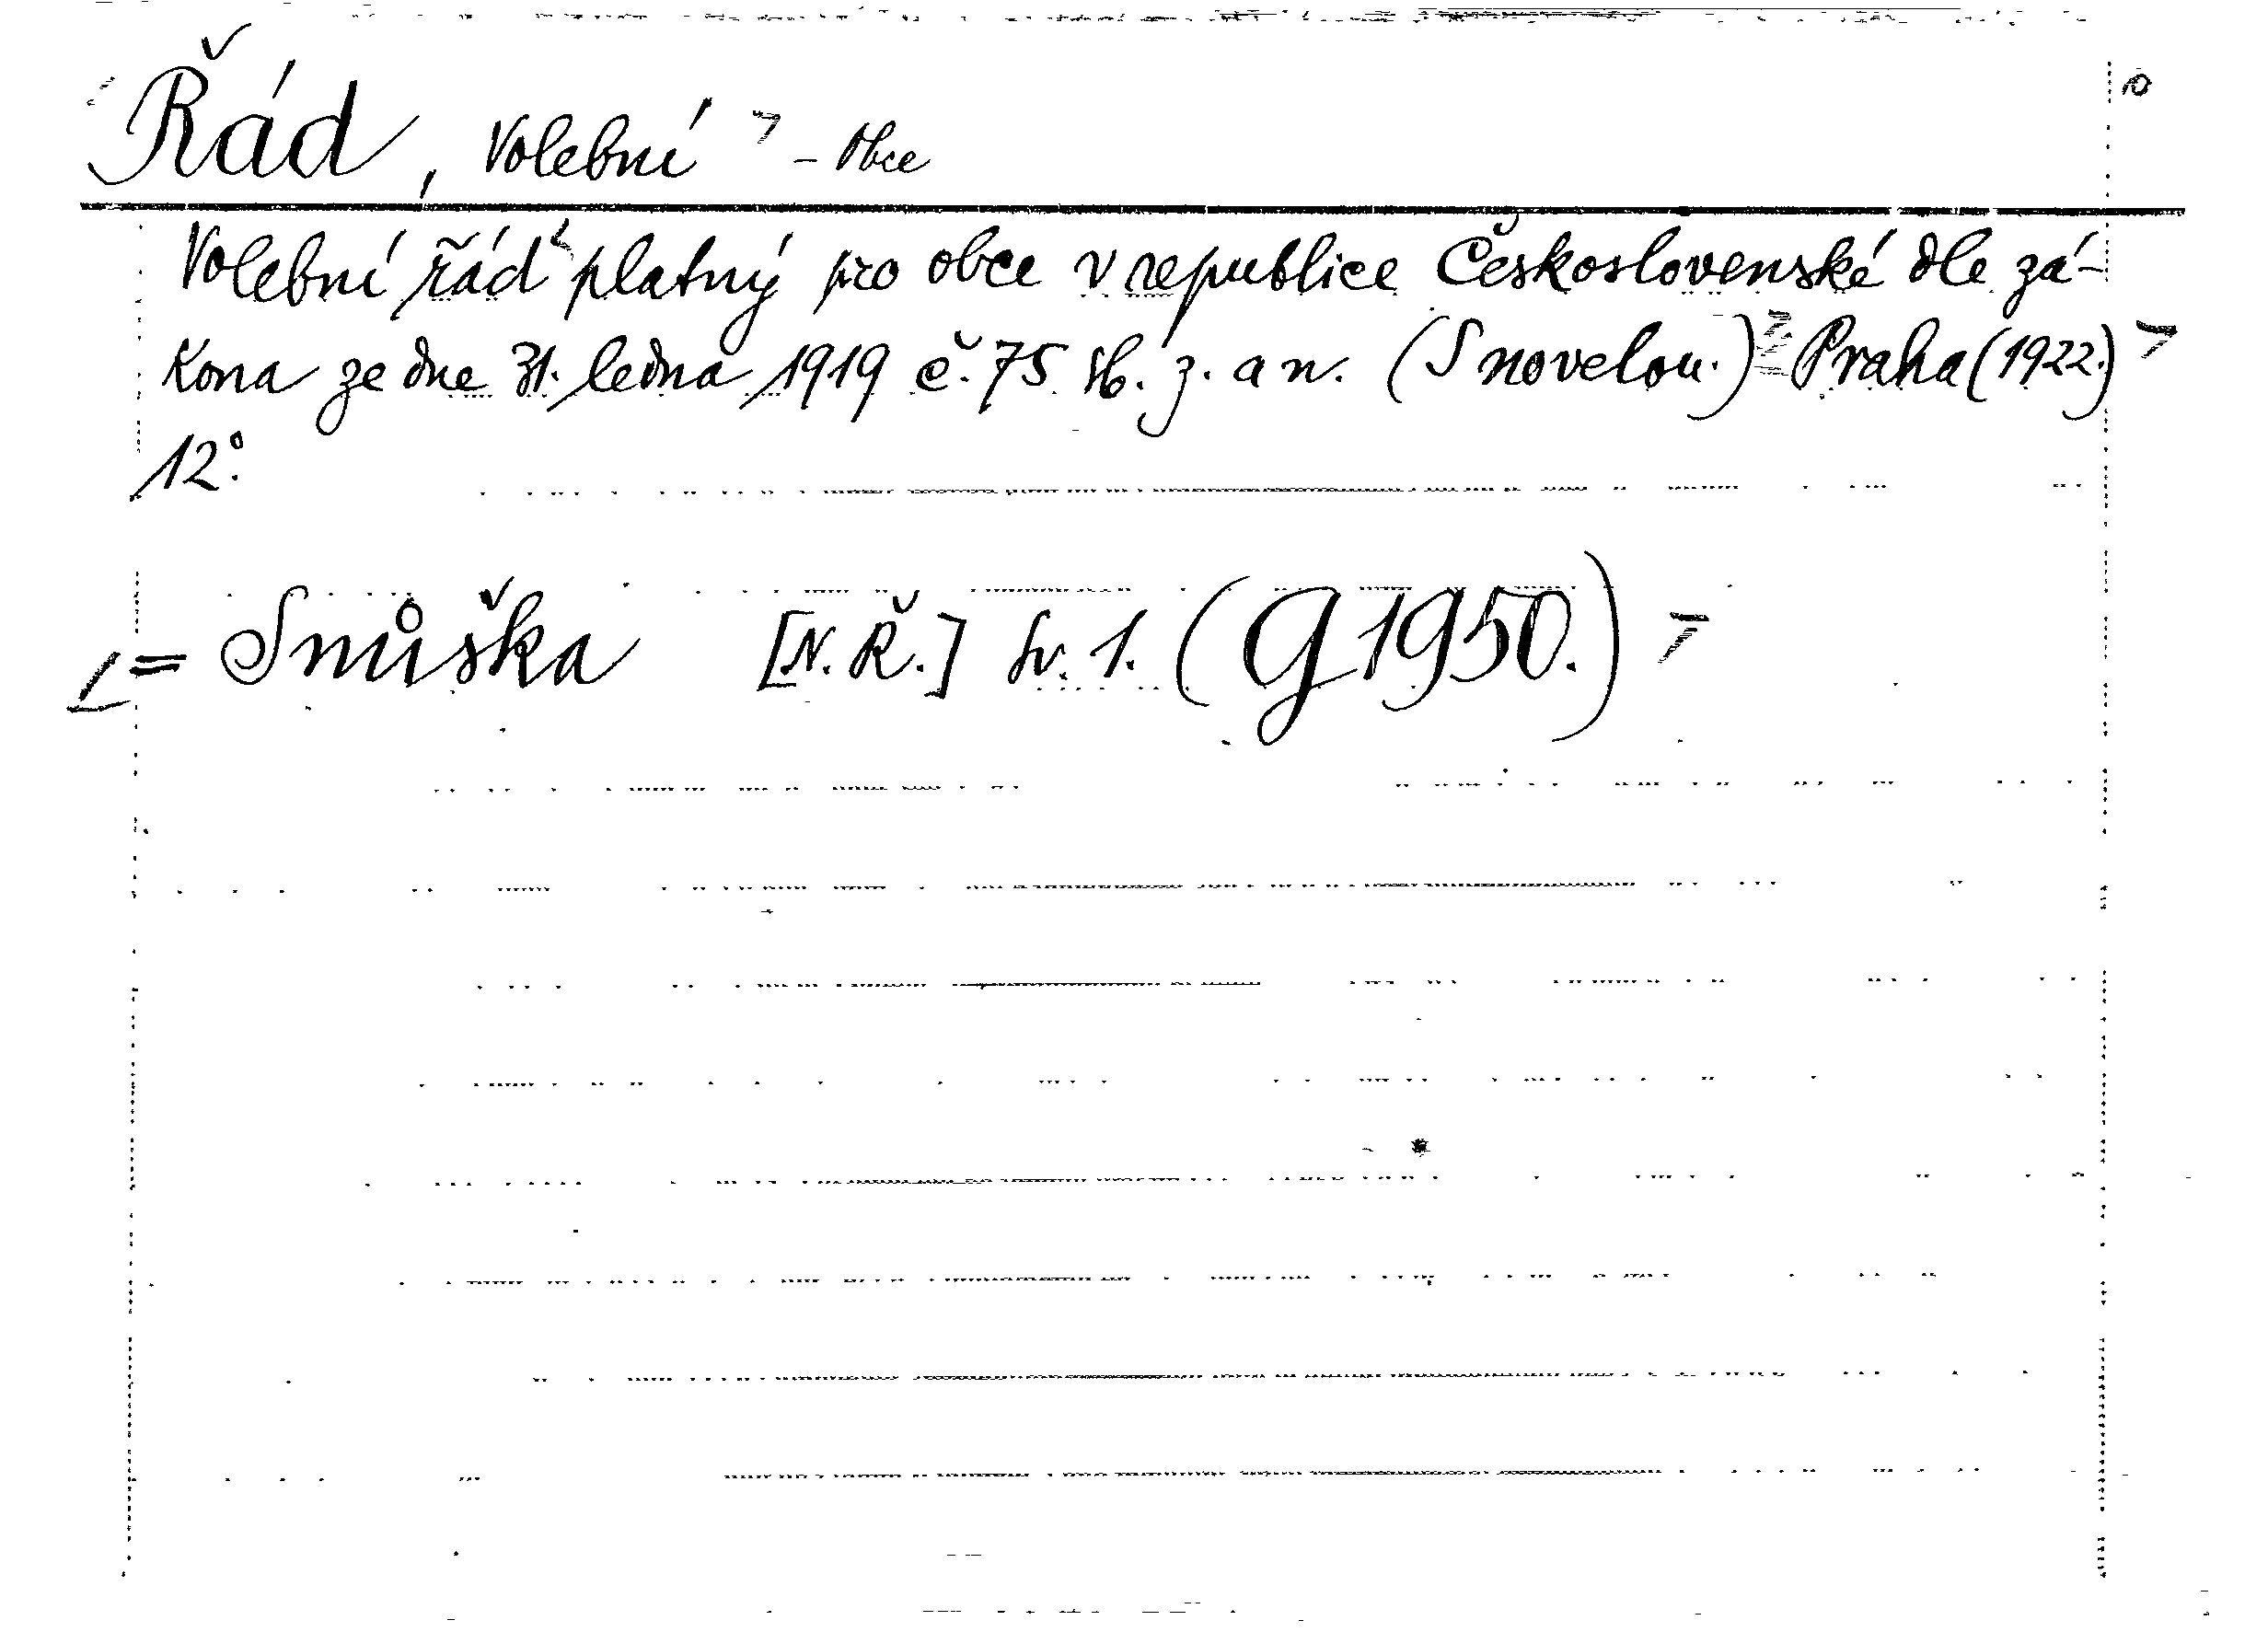 Řád, Volební - Obce
Volební řád platný pro obce v republice Československé dle zá-
kona ze dne 31. ledna 1919 č. 75 sb. z. a n. (S novelou.) Praha (1922.)
12°.
= Snůška [N. Ř.] Sv. 1. (G 1950.)